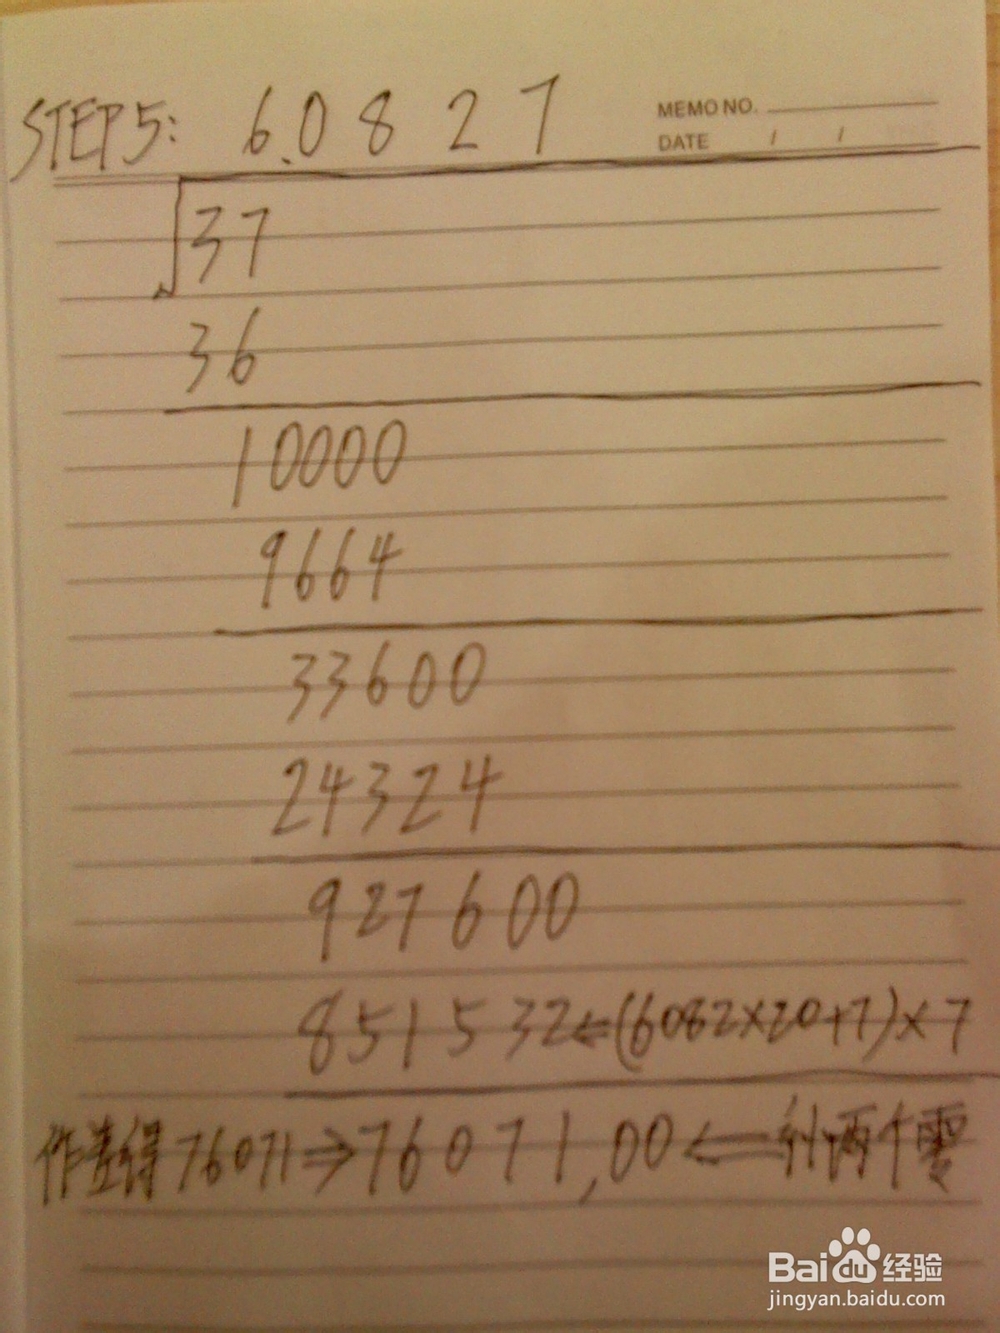 STEP5: 6.0827
MEMO NO.
DATE / /
√37
36
10000
9664
33600
24324
927600
851532⇐(6082×20+7)×7
作差得76071⇒76071,00⇐补两个零
Baidu经验
jingyan.baidu.com